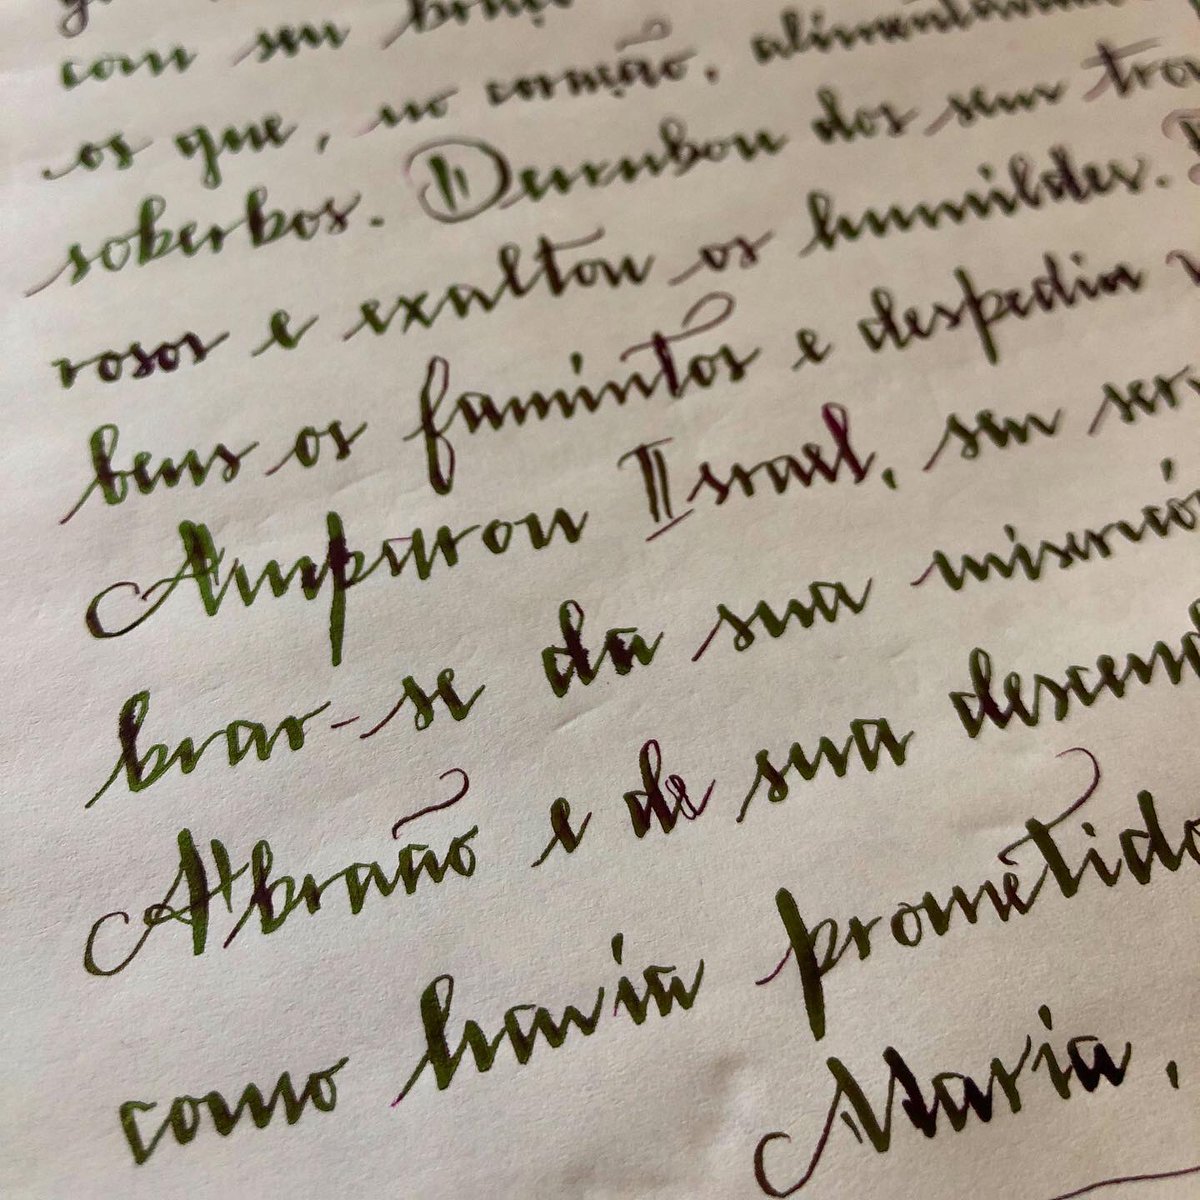 com seu braço
os que, no coração, alimentavam
soberbos. Derrubou dos seus tro
rosos e exaltou os humildes.
bens os famintos e despediu
Amparou Israel, seu ser
brar-se da sua misericó
Abraão e de sua descend
como havia prometido
Maria,